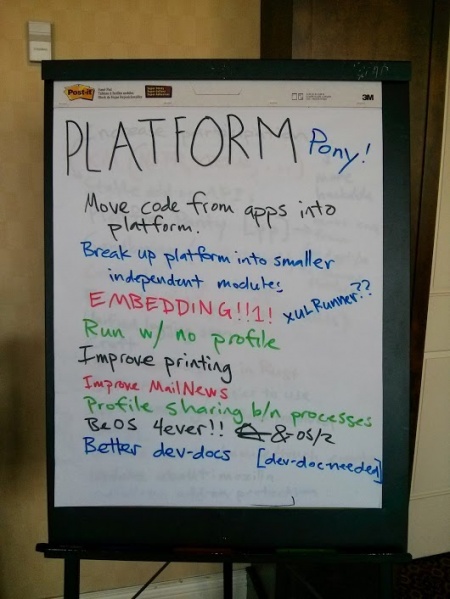 Post-it
3M
PLATFORM Pony!
Move code from apps into
platform.
Break up platform into smaller
independent modules
EMBEDDING!!1! XULRunner??
Run w/ no profile
Improve printing
Improve MailNews
Profile sharing b/n processes
BeOS 4ever!! & OS/2
Better dev-docs [dev-doc-needed]